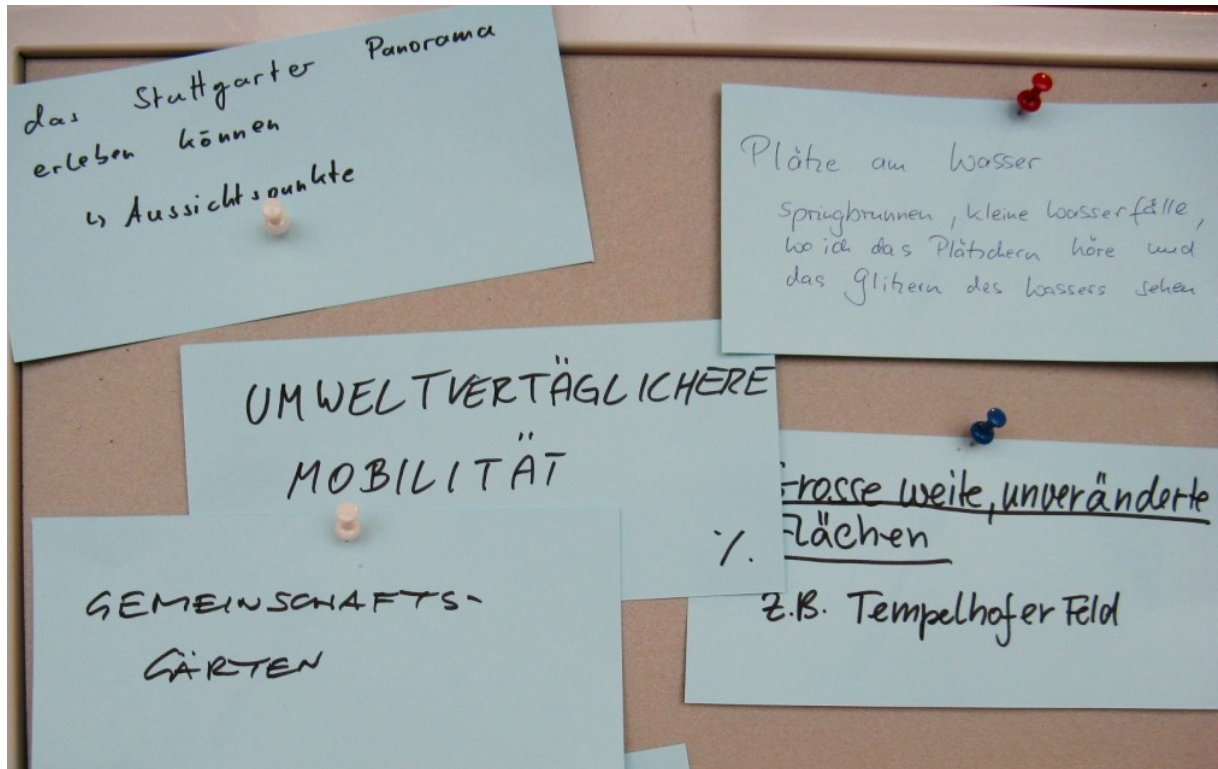 das Stuttgarter Panorama
erleben können
↳ Aussichtspunkte
Plätze am Wasser
Springbrunnen, kleine Wasserfälle,
wo ich das Plätschern höre und
das Glitzern des Wassers sehen
UMWELTVERTÄGLICHERE
MOBILITÄT
٪.
Grosse weite, unveränderte
Flächen
z.B. Tempelhofer Feld
GEMEINSCHAFTS-
GÄRTEN